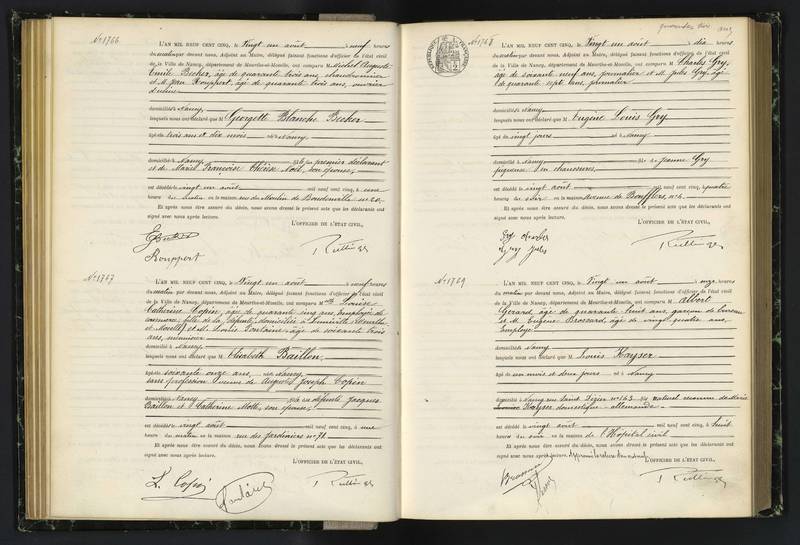 No 1766
L'AN MIL NEUF CENT CINQ, le Vingt un août à neuf heures
du matin par devant nous, Adjoint au Maire, délégué faisant fonctions d'officier de l'état civil
de la Ville de Nancy, département de Meurthe-et-Moselle, ont comparu M Michel Auguste
Emile Becker, âgé de quarante trois ans,
et M. Jean Rouppert, âgé de quarante trois ans, ouvrier
domiciliés à Nancy
lesquels nous ont déclaré que M Georgette Blanche Becker
âgé de trois ans et dix mois né à Nancy
domicilié à Nancy fils du premier déclarant
et de Marie Françoise Thérèse Noël, son épouse,
est décédé le vingt un août mil neuf cent cinq, à une
heure du matin en la maison rue du Moulin de Boudonville no 20.
Et après nous être assuré du décès, nous avons dressé le présent acte que les déclarants ont
signé avec nous après lecture.
L'OFFICIER DE L'ÉTAT CIVIL,
Rouppert
No 1767
L'AN MIL NEUF CENT CINQ, le Vingt un août à neuf heures
du matin par devant nous, Adjoint au Maire, délégué faisant fonctions d'officier de l'état civil
de la Ville de Nancy, département de Meurthe-et-Moselle, ont comparu M Louise
Catherine Copin, âgée de quarante cinq ans, employée de
commerce, fille de la défunte, domiciliée à Lunéville (Meurthe
et Moselle) et M. Louis Fontaine, âgé de soixante trois
ans, menuisier
domiciliés à Nancy
lesquels nous ont déclaré que M Elisabeth Baillon,
âgé de soixante onze ans, née à Nancy
sans profession, veuve de Auguste Joseph Copin
domicilié à Nancy fils de défunts Jacques
Baillon et Catherine son épouse,
est décédé le vingt août mil neuf cent cinq, à une
heure du matin en la maison rue des Jardiniers no 71.
Et après nous être assuré du décès, nous avons dressé le présent acte que les déclarants ont
signé avec nous après lecture.
L'OFFICIER DE L'ÉTAT CIVIL,
L. Copin
quarante trois ans
No 1768
L'AN MIL NEUF CENT CINQ, le Vingt un août à dix heures
du matin par devant nous, Adjoint au Maire, délégué faisant fonctions d'officier de l'état civil
de la Ville de Nancy, département de Meurthe-et-Moselle, ont comparu M Charles Gry,
âgé de soixante neuf ans, journalier et M. Jules Gry, âgé
de quarante sept ans, journalier
domiciliés à Nancy
lesquels nous ont déclaré que M Eugène Louis Gry
âgé de vingt jours né à Nancy
domicilié à Nancy fils de Jeanne Gry
piqueuse en chaussures
est décédé le vingt août mil neuf cent cinq, à quatre
heures du soir en la maison Avenue de Boufflers, no 6.
Et après nous être assuré du décès, nous avons dressé le présent acte que les déclarants ont
signé avec nous après lecture.
L'OFFICIER DE L'ÉTAT CIVIL,
Gry Charles
Gry Jules
No 1769
L'AN MIL NEUF CENT CINQ, le Vingt un août à onze heures
du matin par devant nous, Adjoint au Maire, délégué faisant fonctions d'officier de l'état civil
de la Ville de Nancy, département de Meurthe-et-Moselle, ont comparu M Albert
Gérard, âgé de quarante huit ans, garçon de bureau
et M. Eugène Brossard, âgé de vingt quatre ans,
Employé
domiciliés à Nancy
lesquels nous ont déclaré que M Louis Kayser
âgé de un mois et deux jours né à Nancy
domicilié à Nancy rue Saint Dizier no 143 fils naturel reconnu de Marie
Kayser domestique allemande
est décédé le vingt août mil neuf cent cinq, à huit
heures du soir en la maison de l'Hôpital civil
Et après nous être assuré du décès, nous avons dressé le présent acte que les déclarants ont
signé avec nous après lecture.
L'OFFICIER DE L'ÉTAT CIVIL,